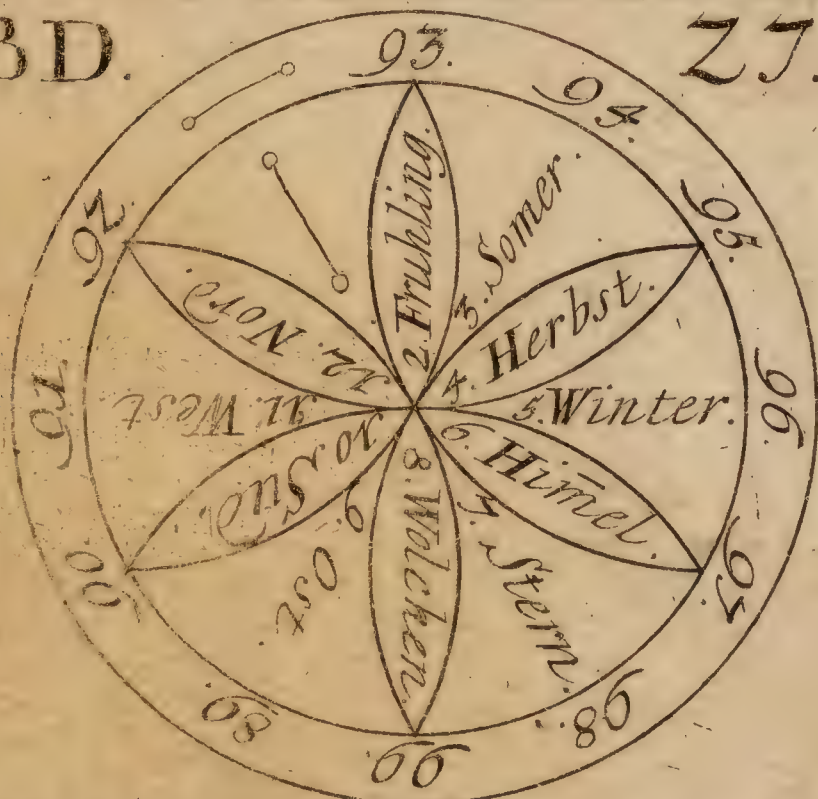 BD.
93.
94.
95.
96.
97.
98.
99.
89.
90.
91.
92.
2 Fruhling.
3. Somer.
4. Herbst.
5. Winter.
6. Him̄el.
7. Stern.
8. Wolchen.
9. Ost.
10 Sud.
11. West
12. Nord.